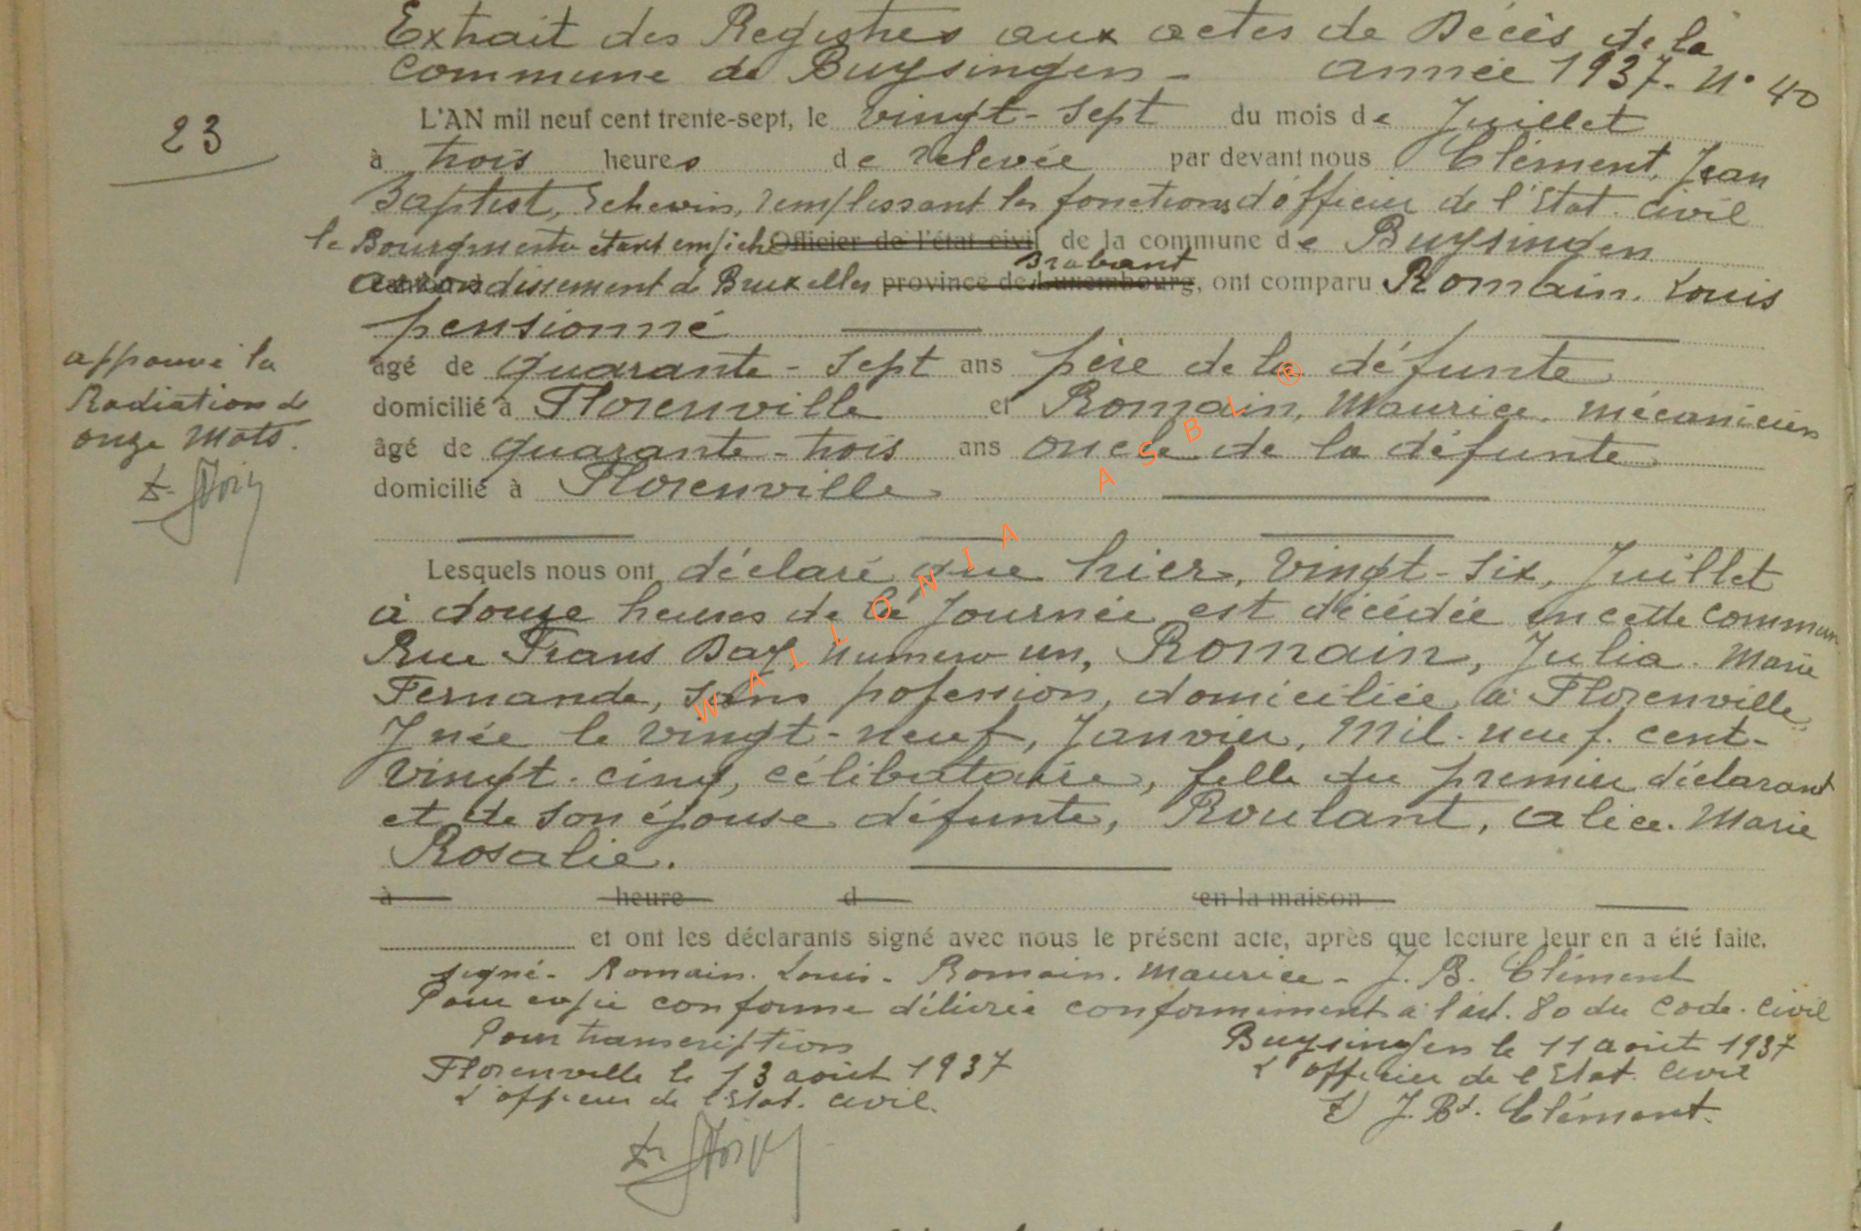 Extrait des Registres aux actes de Décès de la
Commune de Buysingen - année 1937. N° 40
23
L'AN mil neuf cent trente-sept, le vingt-sept du mois de Juillet
à trois heures de relevée par devant nous Clément, Jean
Baptist, Echevin, remplissant les fonctions d'officier de l'Etat. Civil
le Bourgmestre étant empiché Officier de l'état civil de la commune de Buysingen
arrondissement de Bruxelles province de Luxembourg, Brabant, ont comparu Romain. Louis
pensionné
âgé de quarante-sept ans père de la défunte
domicilié à Florenville et Romain, Maurice. mécanicien
âgé de quarante-trois ans oncle de la défunte
domicilié à Florenville
approuvé la
Radiation de
onze mots.
Lesquels nous ont déclaré que hier, vingt-six, Juillet
à douze heures de la journée est décédée en cette commune
Rue Frans Bay, numero un, Romain, Julia. Marie
Fernande, sans pofession, domiciliée à Florenville
y née le vingt-neuf, Janvier, mil. neuf. cent-
vingt. cinq, célibataire, fille du premier déclarant
et de son épouse défunte, Roulant, Alice. Marie
Rosalie.
à heure d en la maison
et ont les déclarants signé avec nous le présent acte, après que lecture leur en a été faite.
signé - Romain. Louis - Romain. Maurice - J. B. Clément
Pour copie conforme délivrée conformément à l'art. 80 du Code. Civil
Pour transcription Buysingen le 11 août 1937
Florenville le 13 août 1937 L'officier de l'Etat. Civil
L'officier de l'Etat. Civil. J. Bt. Clément.
WALLONIA ASBL ®